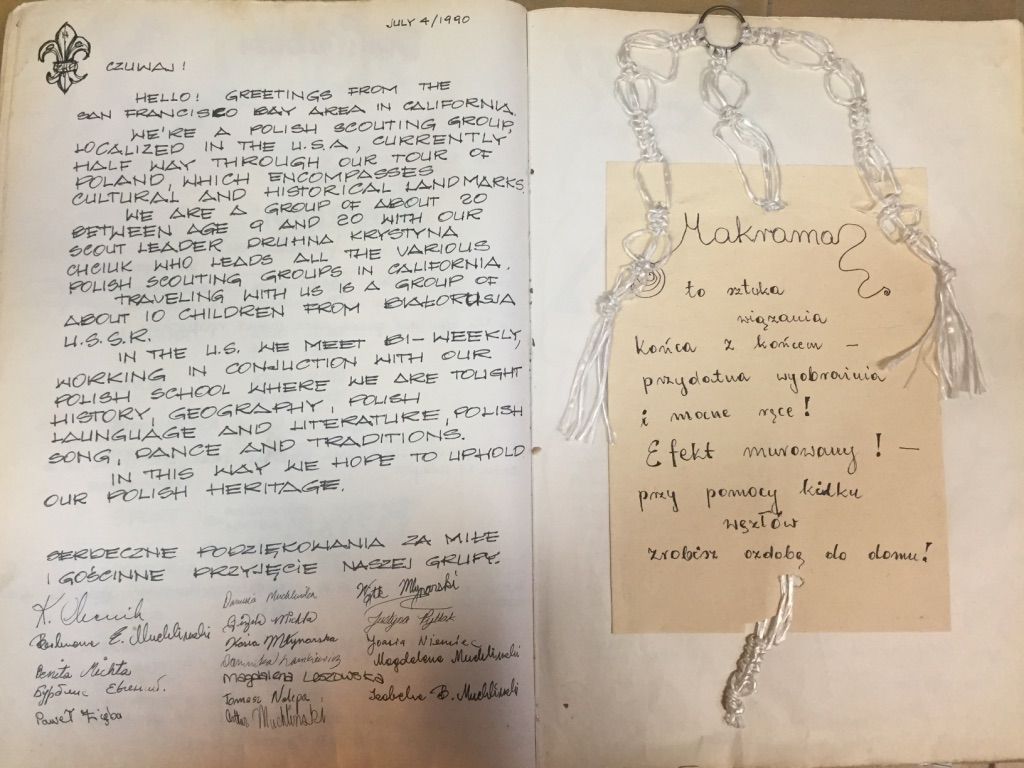 JULY 4/1990
CZUWAJ!
HELLO! GREETINGS FROM THE
SAN FRANCISCO BAY AREA IN CALIFORNIA.
WE'RE A POLISH SCOUTING GROUP,
LOCALIZED IN THE U.S.A, CURRENTLY
HALF WAY THROUGH OUR TOUR OF
POLAND, WHICH ENCOMPASSES
CULTURAL AND HISTORICAL LANDMARKS.
WE ARE A GROUP OF ABOUT 20
BETWEEN AGE 9 AND 20 WITH OUR
SCOUT LEADER DRUHNA KRYSTYNA
CHCIUK WHO LEADS ALL THE VARIOUS
POLISH SCOUTING GROUPS IN CALIFORNIA.
TRAVELING WITH US IS A GROUP OF
ABOUT 10 CHILDREN FROM BIAŁORUSIA
U.S.S.R.
IN THE U.S. WE MEET BI-WEEKLY,
WORKING IN CONJUCTION WITH OUR
POLISH SCHOOL WHERE WE ARE TOUGHT
HISTORY, GEOGRAPHY, POLISH
LAUNGUAGE AND LITERATURE, POLISH
SONG, DANCE AND TRADITIONS.
IN THIS WAY WE HOPE TO UPHOLD
OUR POLISH HERITAGE.
SERDECZNE PODZIĘKOWANIA ZA MIŁE
I GOŚCINNE PRZYJĘCIE NASZEJ GRUPY.
Danusia Muchlinska
Młynarski
E. Muchlinski
Michta
Justyna
Benita Michta
Kasia Młynarska
Joasia Niemiec
Magdalena Muchlinski
Magdalena Leszowska
Paweł Zięba
Tomasz Nalepa
Izabela B. Muchlinski
Muchliński
Makrama
to sztuka
wiązania
Końca z końcem –
przydatna wyobraźnia
i mocne ręce!
Efekt murowany! –
przy pomocy kilku
węzłów
zrobisz ozdobę do domu!